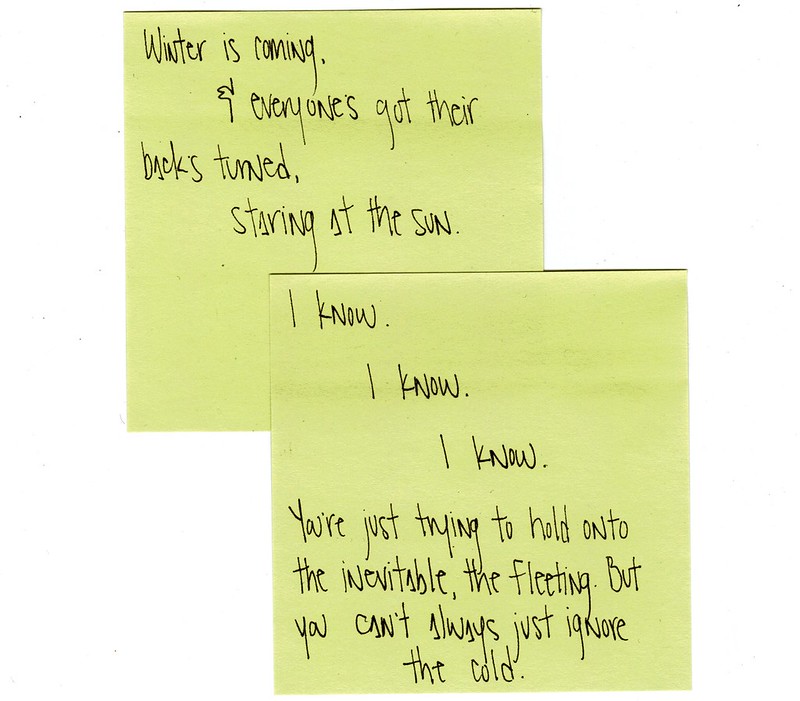 Winter is coming,
& everyone's got their
back's turned,
staring at the sun.
I know.
I know.
I know.
You're just trying to hold onto
the inevitable, the fleeting. But
you can't always just ignore
the cold.